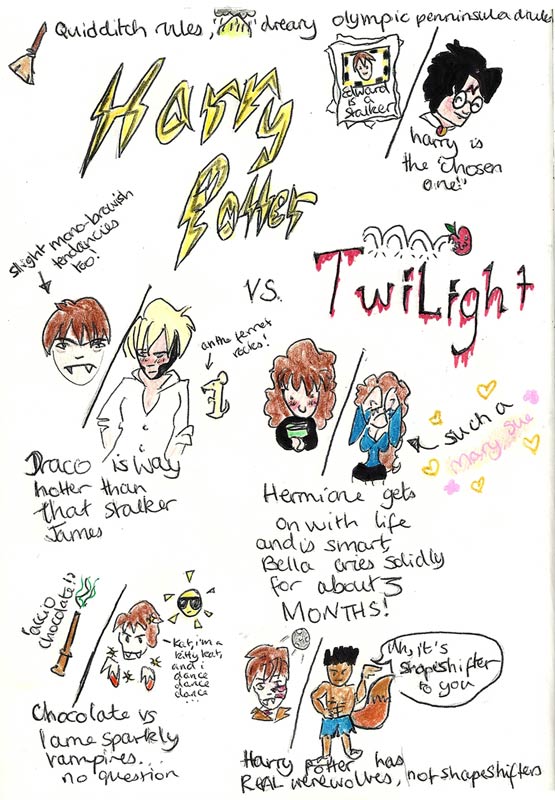 Quidditch rules, dreary olympic penninsula drules
Harry
Potter
Edward
is a
stalker
harry is
the "chosen
one"
slight mono-browish
tendencies
too!
VS.
Twilight
an the fernet
rocks!
Draco is way
hotter than
that stalker
James
such a
mary sue
Hermione gets
on with life
and is smart,
Bella cries solidly
for about 3
MONTHS!
'accio
chocolate!'
Kat, i'm a
kitty kat,
and i
dance
dance
dance
...
Chocolate vs
lame sparkly
vampires...
no question
Uh, it's
shapeshifter
to you
Harry Potter has
REAL werewolves, not shapeshifters